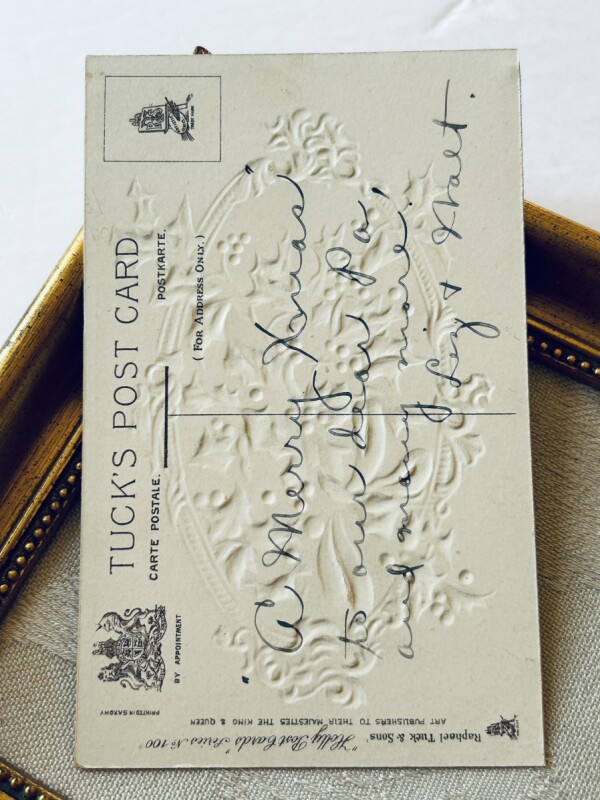 TUCK'S POST CARD
CARTE POSTALE.
POSTKARTE.
( FOR ADDRESS ONLY. )
BY APPOINTMENT
PRINTED IN SAXONY
Raphael Tuck & Sons' "Holly Post Cards" Series No 100
ART PUBLISHERS TO THEIR MAJESTIES THE KING & QUEEN
"A Merry Xmas"
to our dear Pa,
and many more.
Liz & Walt.